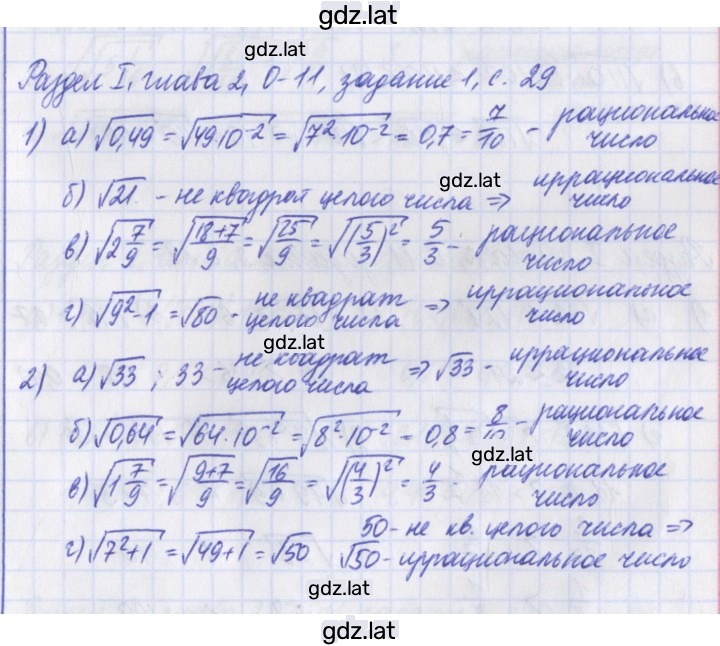 gdz.lat
gdz.lat
Раздел I, глава 2, О-11, задание 1, с. 29
1) а) √0,49 = √49·10⁻² = √7²·10⁻² = 0,7 = 7/10 - рациональное число
б) √21 - не квадрат целого числа ⇒ иррациональное число
gdz.lat
в) √2 7/9 = √(18+7)/9 = √25/9 = √(5/3)² = 5/3 - рациональное число
г) √9²-1 = √80 - не квадрат целого числа ⇒ иррациональное число
gdz.lat
2) а) √33 ; 33 - не квадрат целого числа ⇒ √33 - иррациональное число
б) √0,64 = √64·10⁻² = √8²·10⁻² = 0,8 = 8/10 - рациональное число
gdz.lat
в) √1 7/9 = √(9+7)/9 = √16/9 = √(4/3)² = 4/3 - рациональное число
г) √7²+1 = √49+1 = √50 50 - не кв. целого числа ⇒
√50 - иррациональное число
gdz.lat
gdz.lat